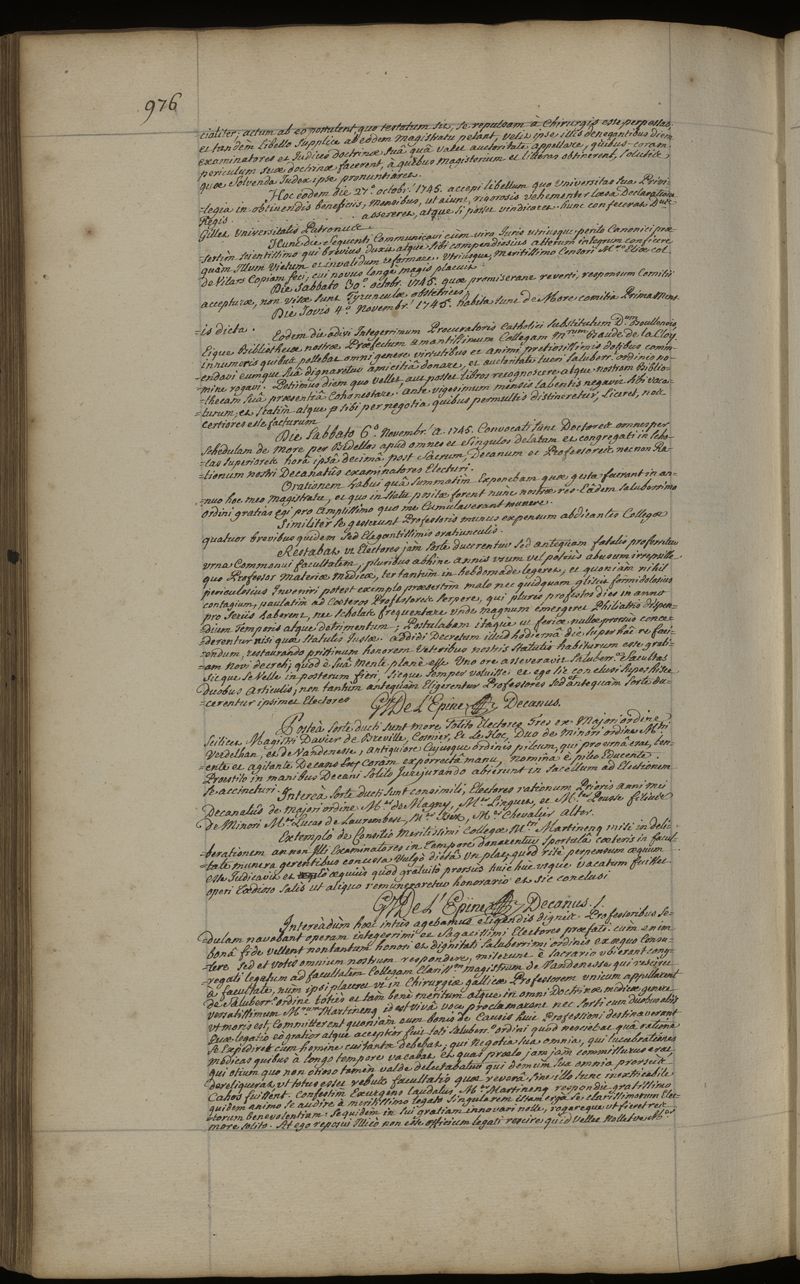 976
cialiter, actum ab eo postulent quo testatum sit, se repulsam a Chirurgis esse perpessas,
et tandem libello supplice ab eodem Magistratu petant, velit ipse illis denegantibus diem
examinatores et Judices doctrinæ suâ quâ valet auctoritate appellare, quibus coram
periculum suæ doctrinæ facerent, à quibus magistorum et litteras obtinerent, solutis,
quæ solvenda Judex ipse pronuntiaret.
Hoc eodem die 27.ª octobr. 1745. accepi libellum quo Universitas sua Privi-
legia in obtinendis beneficiis, Mensibus, ut aiunt, vehementer læsa Declaratione
Regis assereret, atque si posset vindicaret. hunc confecerat D.nus
Gillet Universitatis Patronus.
Hunc die sequenti Communicavi cum viro Juris utriusque perito Canonici præ-
sertim scientissimo qui brevius duxit atque sibi compendiosius alterum integrum conficere
quàm illum Vietum et invalidum reformare. Utriusque, Meritissimo Censori M.ro Eliæ col
de Vilars Copiam feci, cui novus longè magis placuit.
Die Sabbato 30.ª octobr. 1745. quæ promiserant reverti, responsum Comitiis
accepturæ, non visæ sunt Tyrunculæ obstetrices.
Die Jovis 4.ª Novembr. 1745. habita sunt de More comitia Prima Mens-
is dicta.
Eodem die adivi Integerrimum Procuratoris Catholici substitutum D.num
Eique Bibliothecæ nostræ Præfectum amantissimum Collegam M.rum Baude de la Cloy
innumeris quibus pollebat omni genere virtutibus et animi pretiosissimis dotibus comm-
endavi eumque suâ dignaretur amicitiâ donare, et auctoritate tueri saluberr. ordinis no-
mine rogavi. Petiimus diem quo vellet, aut posset libros recognoscere atque nostram Biblio-
thecam suâ præsentiâ Cohonestare. ante vigesimum mensis labentis negavit sibi vaca-
turum, et statim atque p sibi per negotia quibus permultis distineretur, liceret, nos
certiores esse facturum.
Die Sabbato 6.ª Novembr. A. 1745. Convocati sunt Doctores omnes per
schedulam de More per Bidellos apud omnes et singulos delatam et congregati in scho-
las superiores horâ ipsâ decimâ post Sacrum, Decanum et Professores necnon Ra-
tionum nostri Decanatûs examinatores Electuri.
Orationem habui quâ summatim Exponebam quæ gesta fuerant in an-
nuo hoc meo Magistratu, et quo in statu positæ forent nunc nostræ res. Eâdem saluberrimo
ordini gratias egi pro amplissimo quo me Cumulaverant munere.
Similiter se gesserunt Professoris munus expensum abdicantes Collegæ
quatuor brevibus quidem sed Elegantissimis oratiunculis.
Restabat ut Electores jam sorte ducerentur sed antequam fatalis proferretur
urna Commonui facultatem, pluribus abhinc annis usum vel potius abusum irrepsisse
quo Professor Materiæ Medicæ, ter tantum in hebdomade legeret, et quoniam nihil
periculosius Inveniri potest exemplo præsertim malo nec quidquam gliscit formidolosius
contagium, paulatim ad Cæteros Professores serpere, qui plures profestos dies in anno
pro feriis haberent, nec scholas frequentare unde magnum emergeret Philiatris dispen-
dium Temporis atque detrimentum; Postulabam itaque ut feriæ nullæ prorsus conce-
derentur nisi quæ statutis Justæ. addidi Decretum illud hodiernâ die super hac re faci-
endum, restaurando pristinum honorem Veteribus nostris statutis habiturum esse grati-
am novi decreti, quod è suâ mente planè esset. Uno ore asseveravit saluberr. facultas
sicque se Velle in posterum fieri, sicque semper voluisse et ego sic conclusi super hisce
duobus articulis, non tantùm antequam Eligerentur Professores sed antequam sorte du-
cerentur ipsimet Electores
G. J. De L'Epine Decanus.
Posteà sorte ducti sunt more solito Electores tres ex Majori ordine
scilicet Magistri Davier de Breville, Cosnier, et Le Hoc, Duo de Minori ordine M.tri
Verdelhan, et de Vandenesse, antiquiore Cujusque ordinis pileum, qui pro urnâ erat, ten-
ente et agitante Decano coram exporrectâ manu, nomina è pileo educente.
Præstito in manibus Decani solito Jurejurando abierunt in sacellum ad Electionem
se accincturi. Intereà sorte ducti sunt consimili, Electores rationum Prioris anni mei
Decanatûs de Majori ordine M.er de Magny, M.er Lingues, et M.er Pousse filius
de Minori M.er Lucas de Laurembert, M.er, M.er Chevalier alter.
Extemplò de Consilio Meritissimi Collegæ M.ri Martineng misi in deli-
berationem an non illis Examinatores in tempore donarentur sportulâ cæteris in facul-
tate munera gerentibus concessa vulgò dicta un plat, quod ritè perpensum æquum
esse Judicavit et æquius quod gratuitò prorsus huic huc usque vacatum fuisset
operi tædioso satis ut aliquo remuneraretur honorario et sic conclusi
G. J. De L'Epine Decanus./.
Intereàdùm hæc intùs agebamus eligendis dignis Professoribus se-
dulam navabant operam integerrimi et sagacissimi Electores præfati. cum enim
bonâ fide vellent non tantùm honori et dignitati saluberrimi ordinis ex æquo Consu-
lere sed et votis omnium nostrum respondere, miserunt è sacrario ubi erant cong-
regati legatum ad facultatem Collegam Clariss.mum magistrum de Vandenesse qui resciret
à facultate, num ipsi placeret ut in Chirurgiæ gallicæ Professorem unicum appellarent
de saluberr.º ordine toties et tam benè meritum atque in omni Doctrinæ medicæ genere
versatissimum M.rum Martineng id est vivâ voce proclamarent nec sorti cum duobus aliis
ut moris est, committerent quoniam eum bonis de Causis huic Professioni destinaverant
Quæ legatio eò gratior atque acceptior fuit toti saluberr.º ordini quòd nesciebat quâ ratione
se Expediret cum homine cui tanta debebat, qui negotia sua omnia, qui lucubrationes
medicas quibus à longo tempore vacabat, et quas prælo jam jam commissurus erat,
qui otium quo non otioso tamen valdè delectabatur qui demùm sua omnia prorsus
dereliquerat, ut totus esset rebus facultatis quæ reverà sine illo tunc inextricabile
Cahos fuissent. Confestim Exsurgens laudatus M.er Martineng respondit gratissimo
quidem animo se audire à meritissimo legato singularem istam ergà se clarissimorum Elec-
torum benevolentiam: sequidem in sui gratiam innovari nolle, rogareque ut fieret res
more solito. At ego reposui illicò non esse officium legati rescire quid Vellet Nolletve M.er